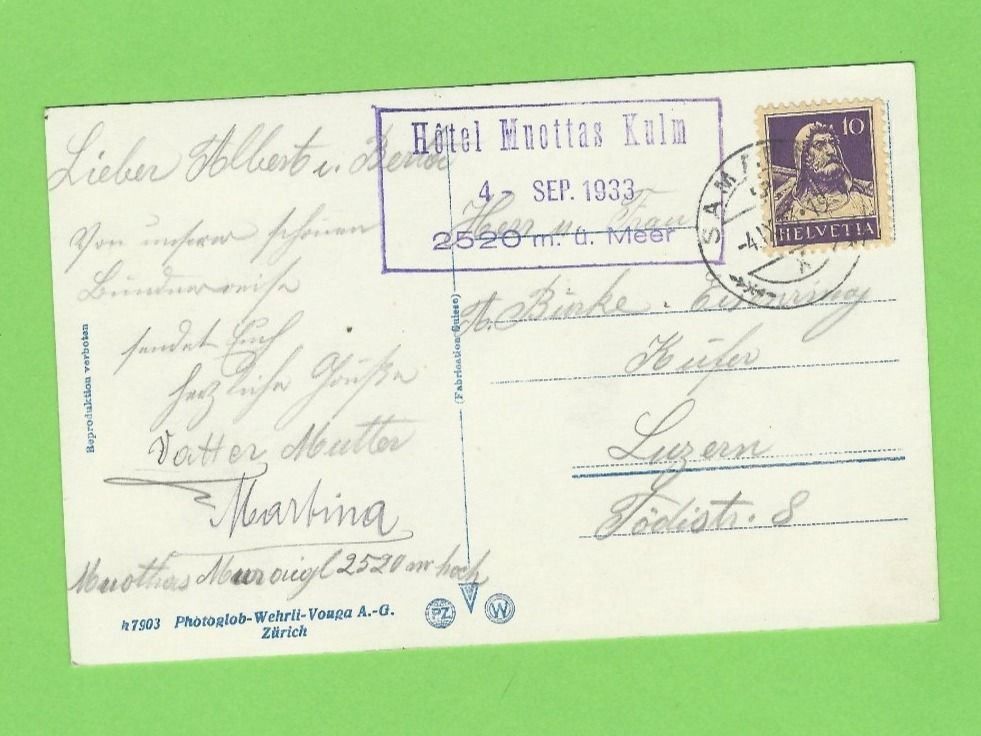 Lieber Albert u.
Von unserer schönen
Bündnerreise
sendet Euch
herzliche Grüße
Vatter Mutter
Martina
Muothas Muraigl 2520 m hoch
Reproduktion verboten
№ 7903 Photoglob-Wehrli-Vouga A.-G.
Zürich
PZ
W
(Fabrication Suisse)
Hôtel Muottas Kulm
4 - SEP. 1933
2520 m. ü. Meer
10
HELVETIA
SAM
-4.IX
Herr u. Frau
A. Bürke
Küfer
Luzern
Tödistr. 8